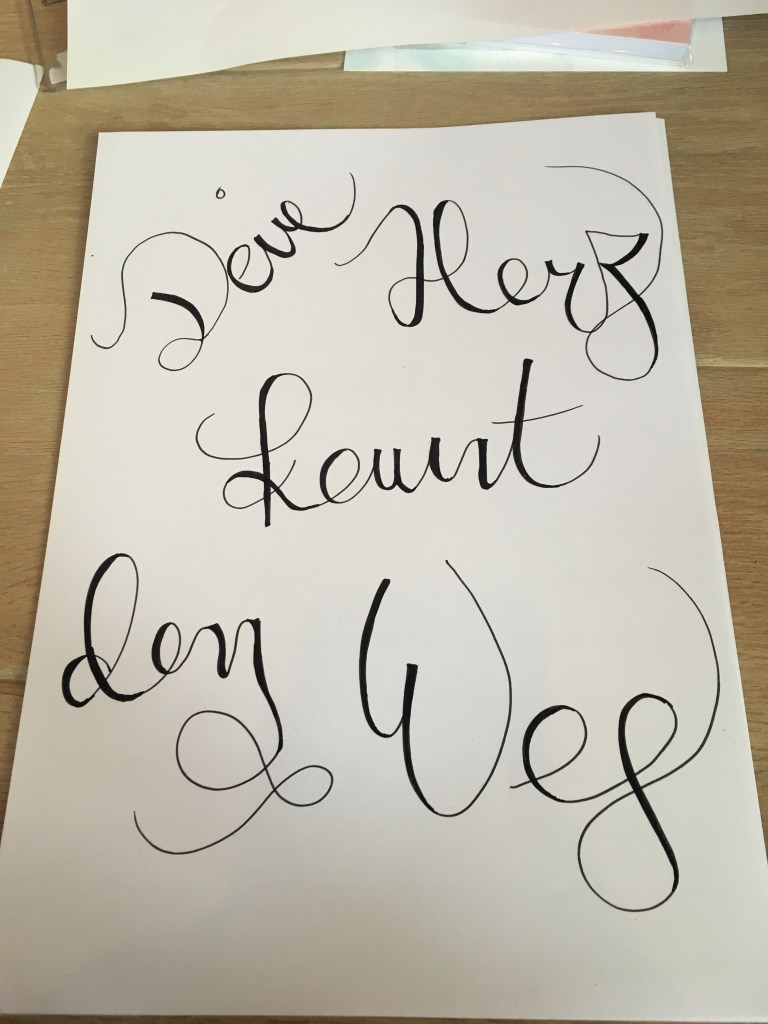 Dein Herz
kennt
den Weg